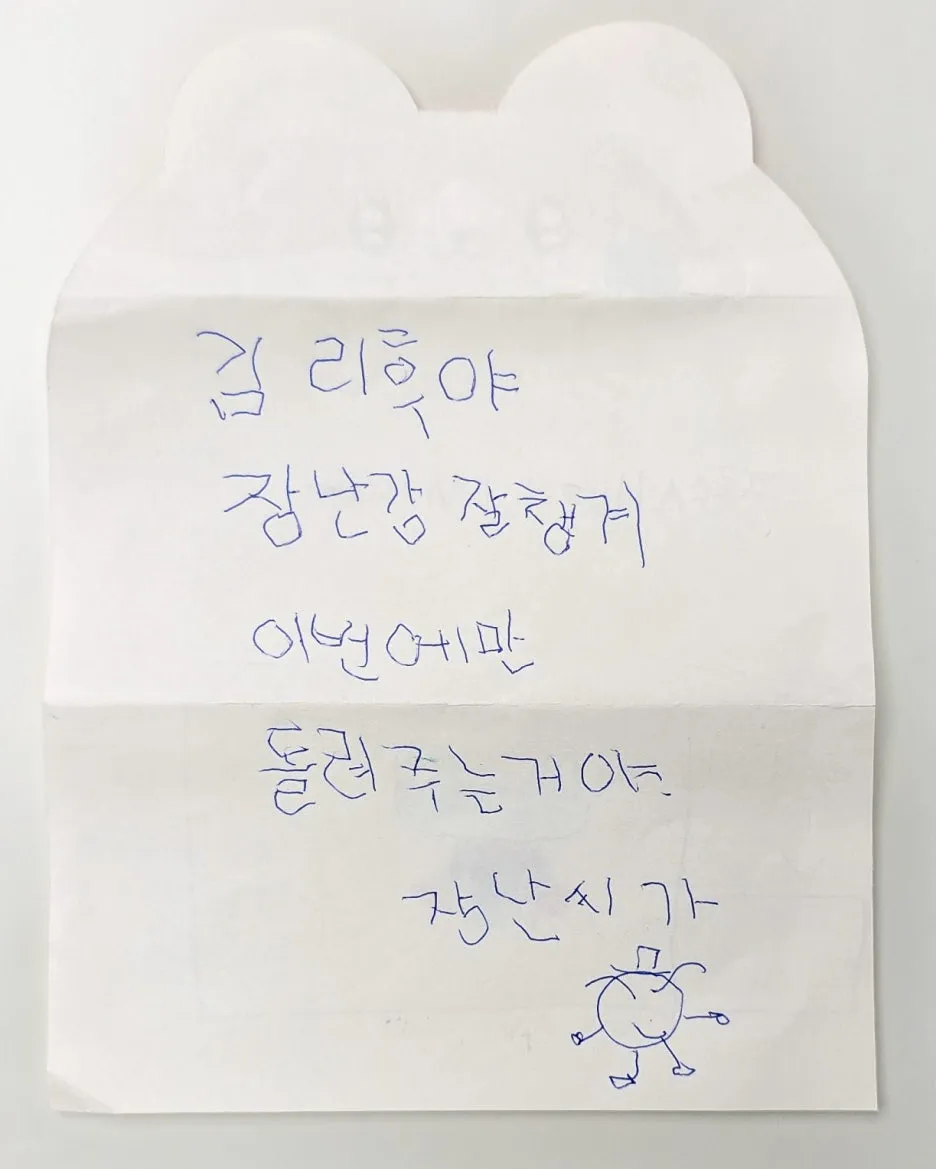 김 리후야
장난감 잘챙겨
이번에만
돌려주는거야.
장난씨가